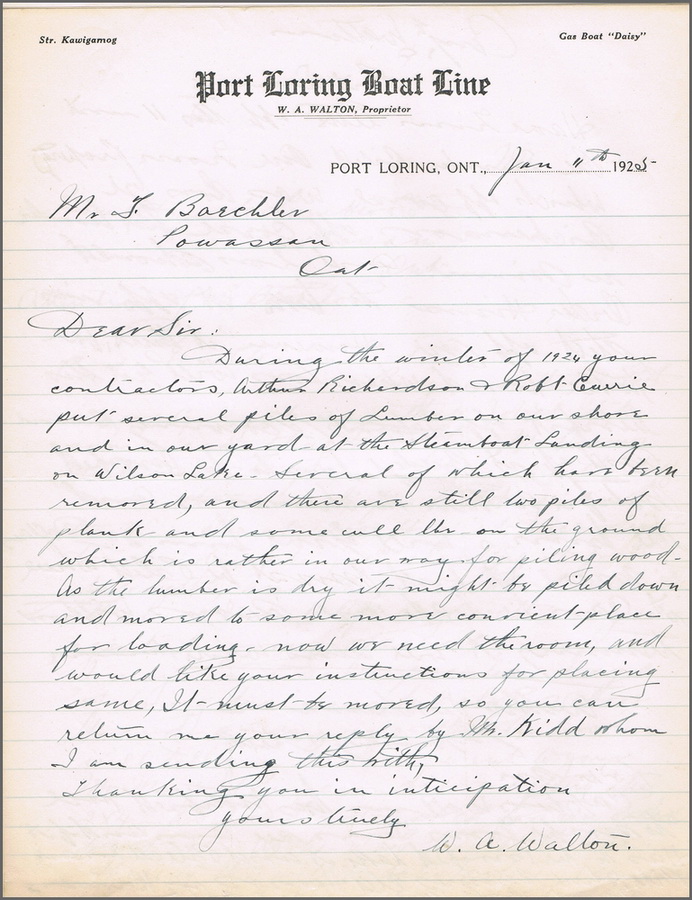 Str. Kawigamog
Gas Boat "Daisy"
Port Loring Boat Line
W. A. WALTON, Proprietor
PORT LORING, ONT., Jan 11th 1925
Mr F. Baechler
Powassan
Ont
Dear Sir:
During the winter of 1924 your
contractors, Arthur Richardson & Robt Currie
put several piles of Lumber on our shore
and in our yard at the Steamboat Landing
on Wilson Lake. Several of which have been
removed, and there are still two piles of
plank and some cull lbr on the ground
which is rather in our way for piling wood.
As the lumber is dry it might be piled down
and moved to some more convient place
for loading. now we need the room, and
would like your instructions for placing
same, It must be moved, so you can
return me your reply by Mr. Kidd whom
I am sending this with,
Thanking you in inticipation
yours truely
W. A. Walton.